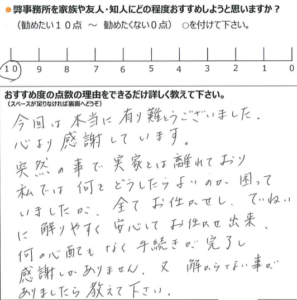 ● 弊事務所を家族や友人・知人にどの程度おすすめしようと思いますか?
(勧めたい10点 ~ 勧めたくない0点) ○を付けて下さい。
10 9 8 7 6 5 4 3 2 1 0
おすすめ度の点数の理由をできるだけ詳しく教えて下さい。
(スペースが足りなければ裏面へどうぞ)
今回は本当に有り難とうございました。
心より感謝しています。
突然の事で実家とは離れており
私では何をどうしたらよいのか困って
いましたが、全てお任せし、ていねい
に解りやすく安心してお任せ出来、
何の心配もなく手続きが完了し
感謝しかありません。又解からない事が
ありましたら教えて下さい。